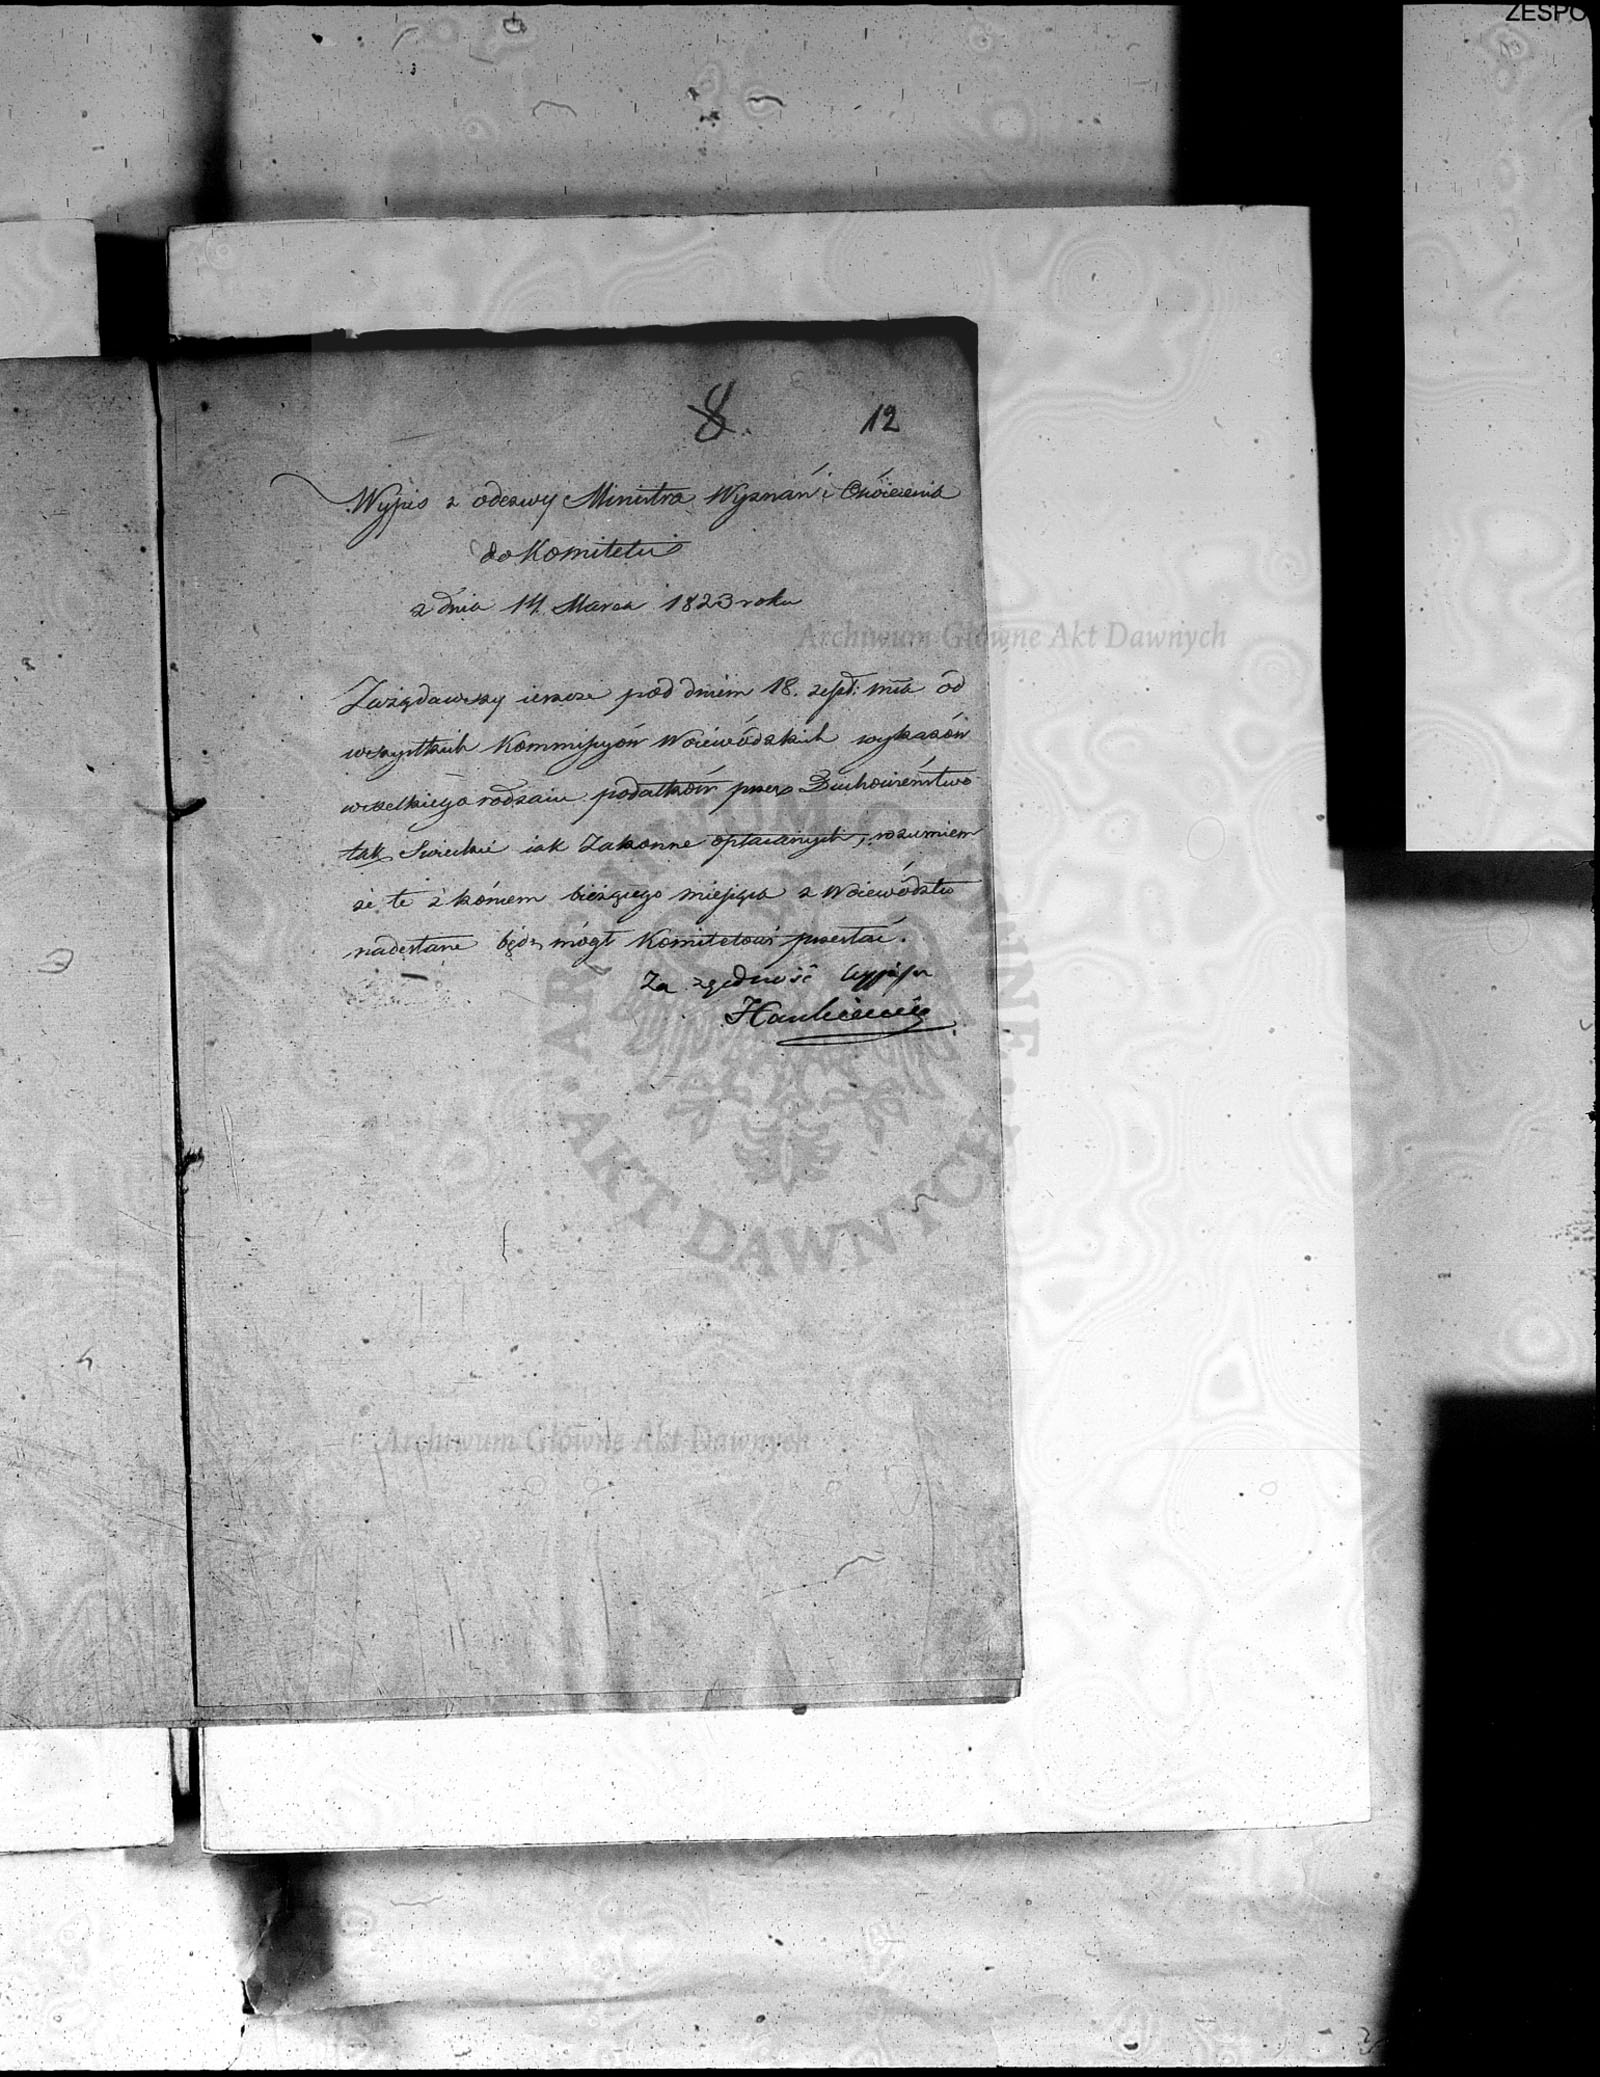 ZESPO
8. 12
Wypis z odezwy Ministra Wyznań i Oświecenia
do Komitetu
z dnia 14 Marca 1823 roku
Zażądawszy ieszcze pod dniem 18. zeszł: mca od
wszystkich Kommissyów Woiewódzkich wykazów
wszelkiego rodzaiu podatków przez Duchowieństwo
tak Swieckie iak Zakonne opłacanych, rozumiem
że te z końcem bieżącego miesiąca z Woiewództw
nadesłane będę mógł Komitetowi przesłać.
Za zgodność wypisu
Hankiewicz
Archiwum Główne Akt Dawnych
ARCHIWUM GŁÓWNE · AKT DAWNYCH ·
Archiwum Główne Akt Dawnych